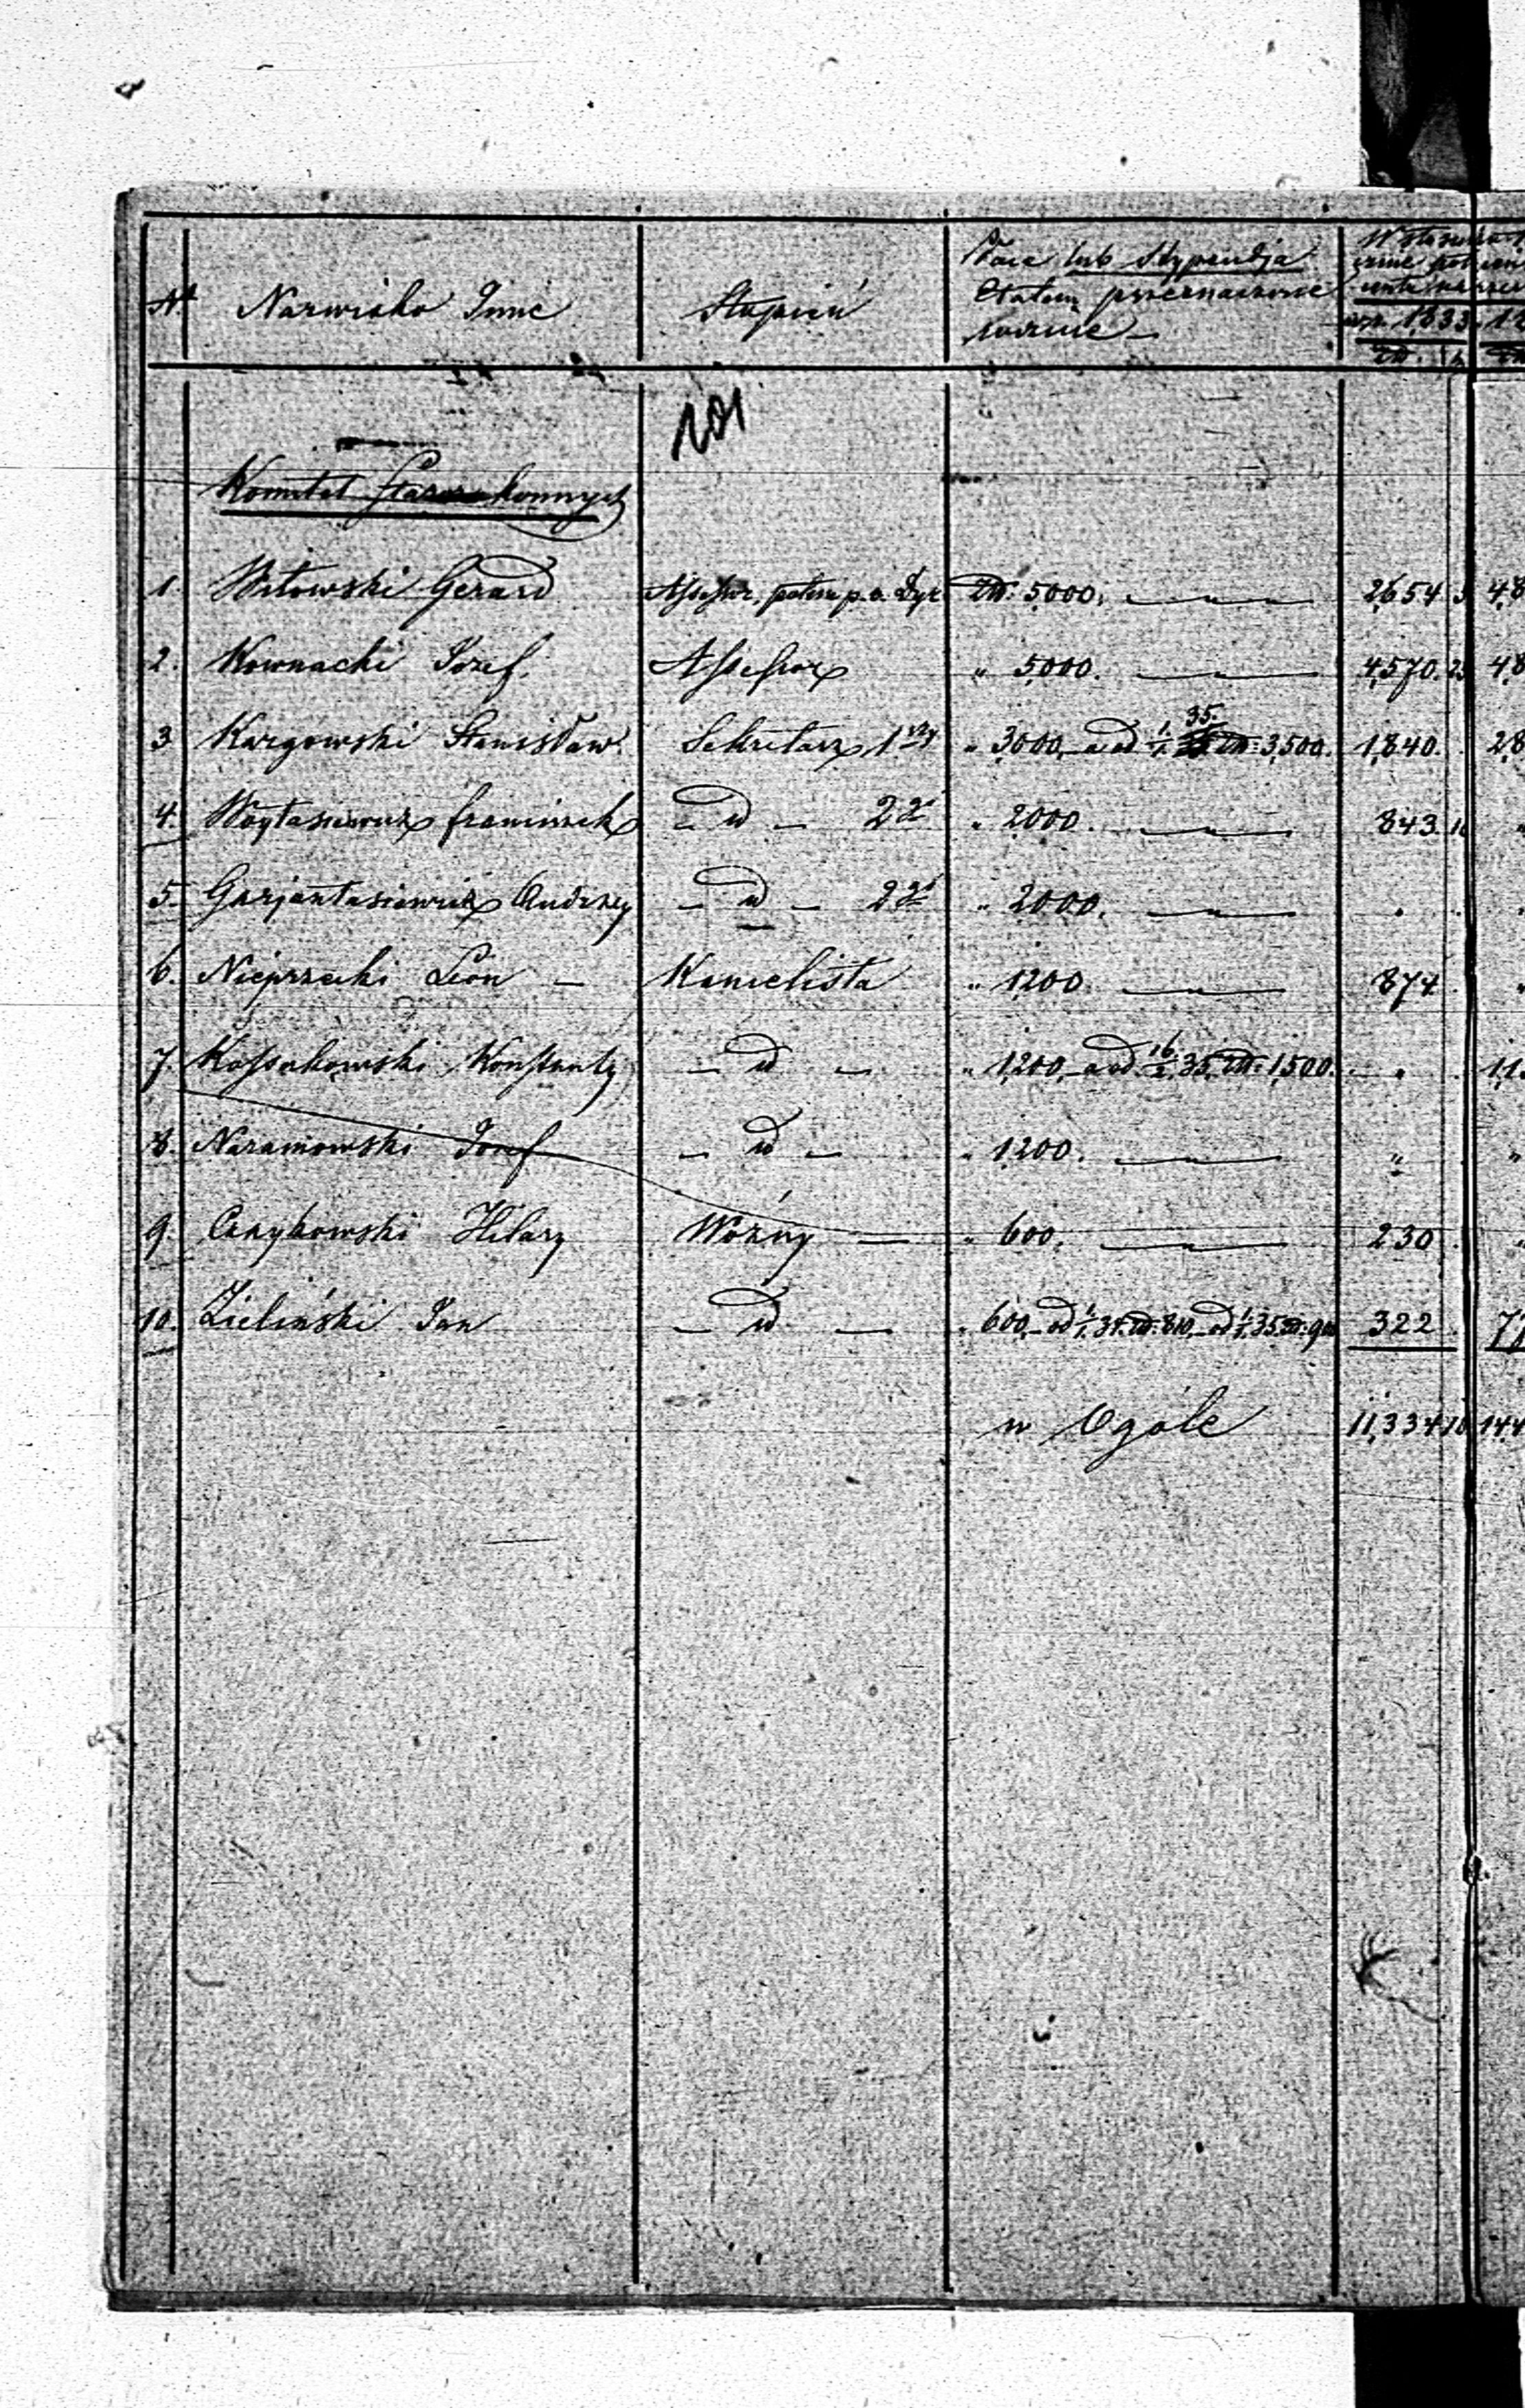 N° Nazwisko Imie Stopień Płaca lub Stypendja
Etatem przeznaczone
rocznie —
1833
101
Komitet konnych
1. Witowski Gerard Assessor, potem p. o. Dyr. Złt: 5,000.
2. Kownacki Jozef. Assessor " 5,000. 4,570.
3 Kurgowski Stanisław Sekretarz 1szy " 3000, a od 1/1 35. Złt: 3,500. 1,840.
4. Woytasiewicz Franciszek — d — 2gi " 2000. 843
5. Garjantasiewicz Andrzey — d — 2gi " 2000.
6. Nieprzecki Leon — Kancelista " 1200 874
7. Kossakowski Konstanty — d — " 1,200, a od 16/2 35, Złt: 1,500.
8. Naramowski Jozef — d — " 1,200. "
9. Czaykowski Hilary Wozny — " 600. 230
10. Zieliński Jan — d — " 600, od 1/1 34. Złt: 810, od 1/1 35 Złt: 900 322
w Ogóle 11,334